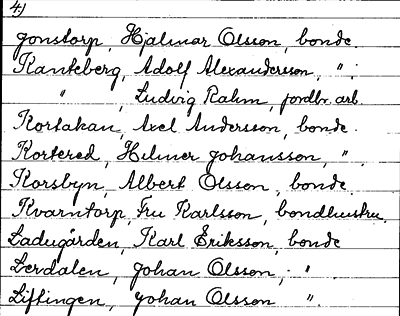 4)
Jonstorp, Hjalmar Olsson, bonde.
Kankeberg, Adolf Alexandersson, " .
" , Ludvig Rahm, jordbr. arb.
Kortakan, Axel Andersson, bonde.
Kortered, Hilmer Johansson, " .
Korsbyn, Albert Olsson, bonde.
Kvarntorp, Fru Karlsson, bondhustru.
Ladugården, Karl Eriksson, bonde
Lerdalen, Johan Olsson, " .
Liflingen, Johan Olsson " .